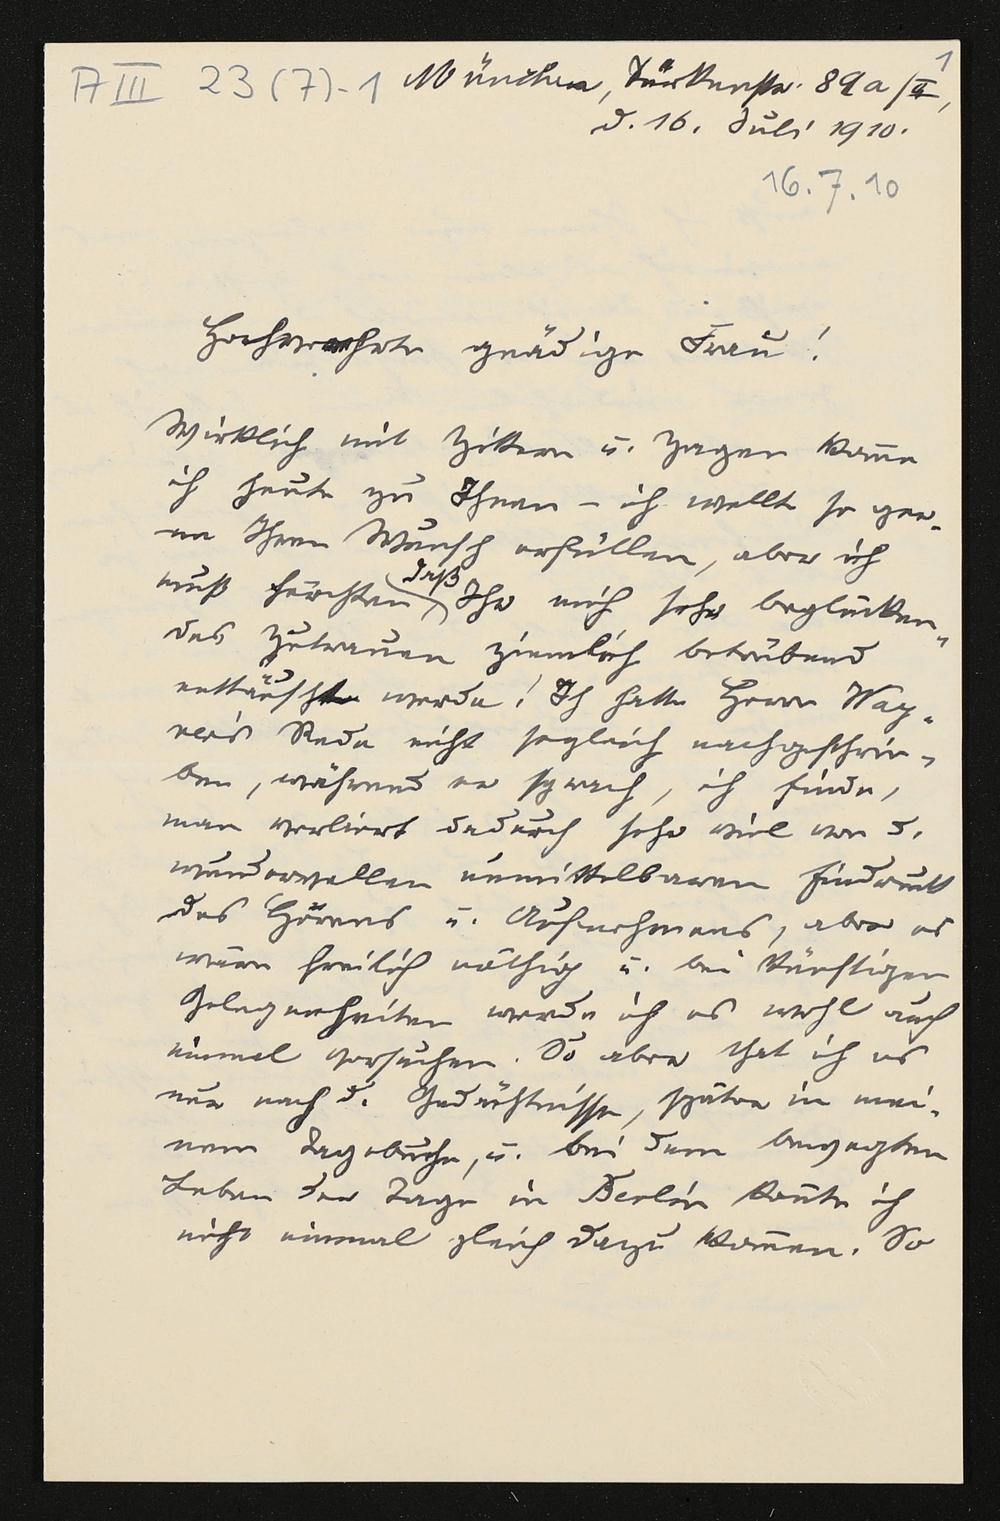 A III 23 (7)-1 München, Türkenstr. 89a/II, 1
d. 16. Juli 1910.
16.7.10
Hochverehrte gnädige Frau!
Wirklich mit Zittern u. Zagen kom̄e
ich heute zu Ihnen – ich wollte so ger-
ne Ihren Wunsch erfüllen, aber ich
muß fürchten, daß Ihr mich sehr beglücken-
des Zutrauen ziemlich betrübend
enttäuscht werde! Ich hatte Herrn Way-
nels Rede nicht sogleich nachgeschrie-
ben, während er sprach, ich finde,
man verliert dadurch sehr viel von d.
wundervollen unmittelbaren Eindruck
des Hörens u. Aufnehmens, aber es
wäre freilich nöthig u. bei künftigen
Gelegenheiten werde ich es wohl auch
einmal versuchen. So aber that ich es
nur nach d. Gedächtnisse, später in mei-
nem Tagebuche, u. bei dem bewegten
Leben der Tage in Berlin kon̄te ich
nicht einmal gleich dazu kom̄en. So